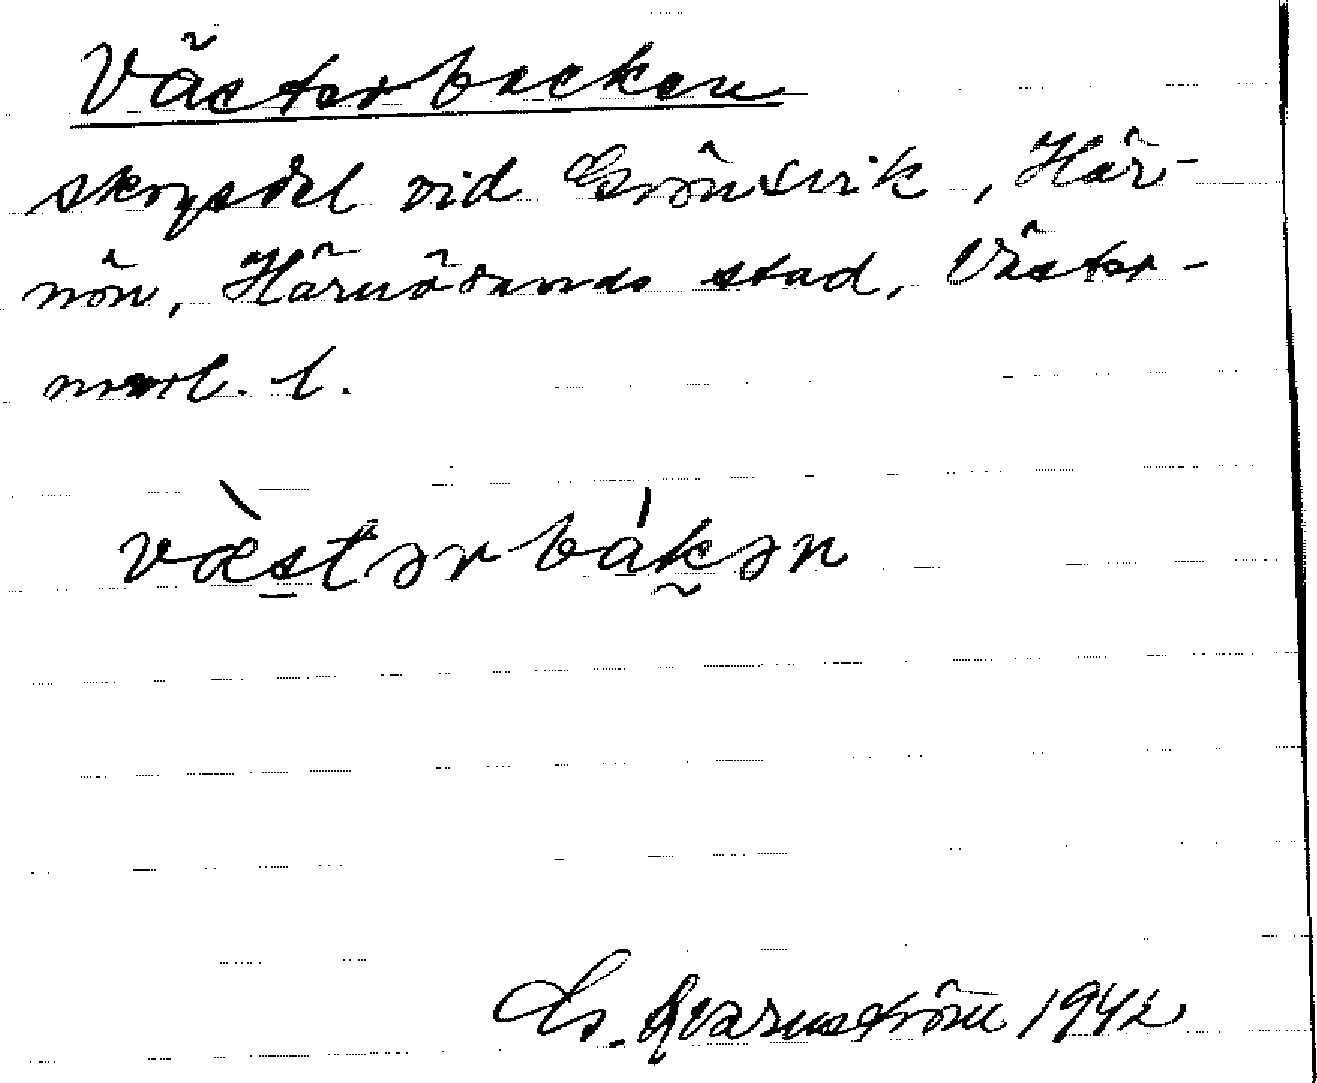 Västerbacken
skogsdel vid Grönsvik, Här-
nön, Härnösands stad, Väster-
norrl. l.
væ̀stərbákən
Qvarnström 1942